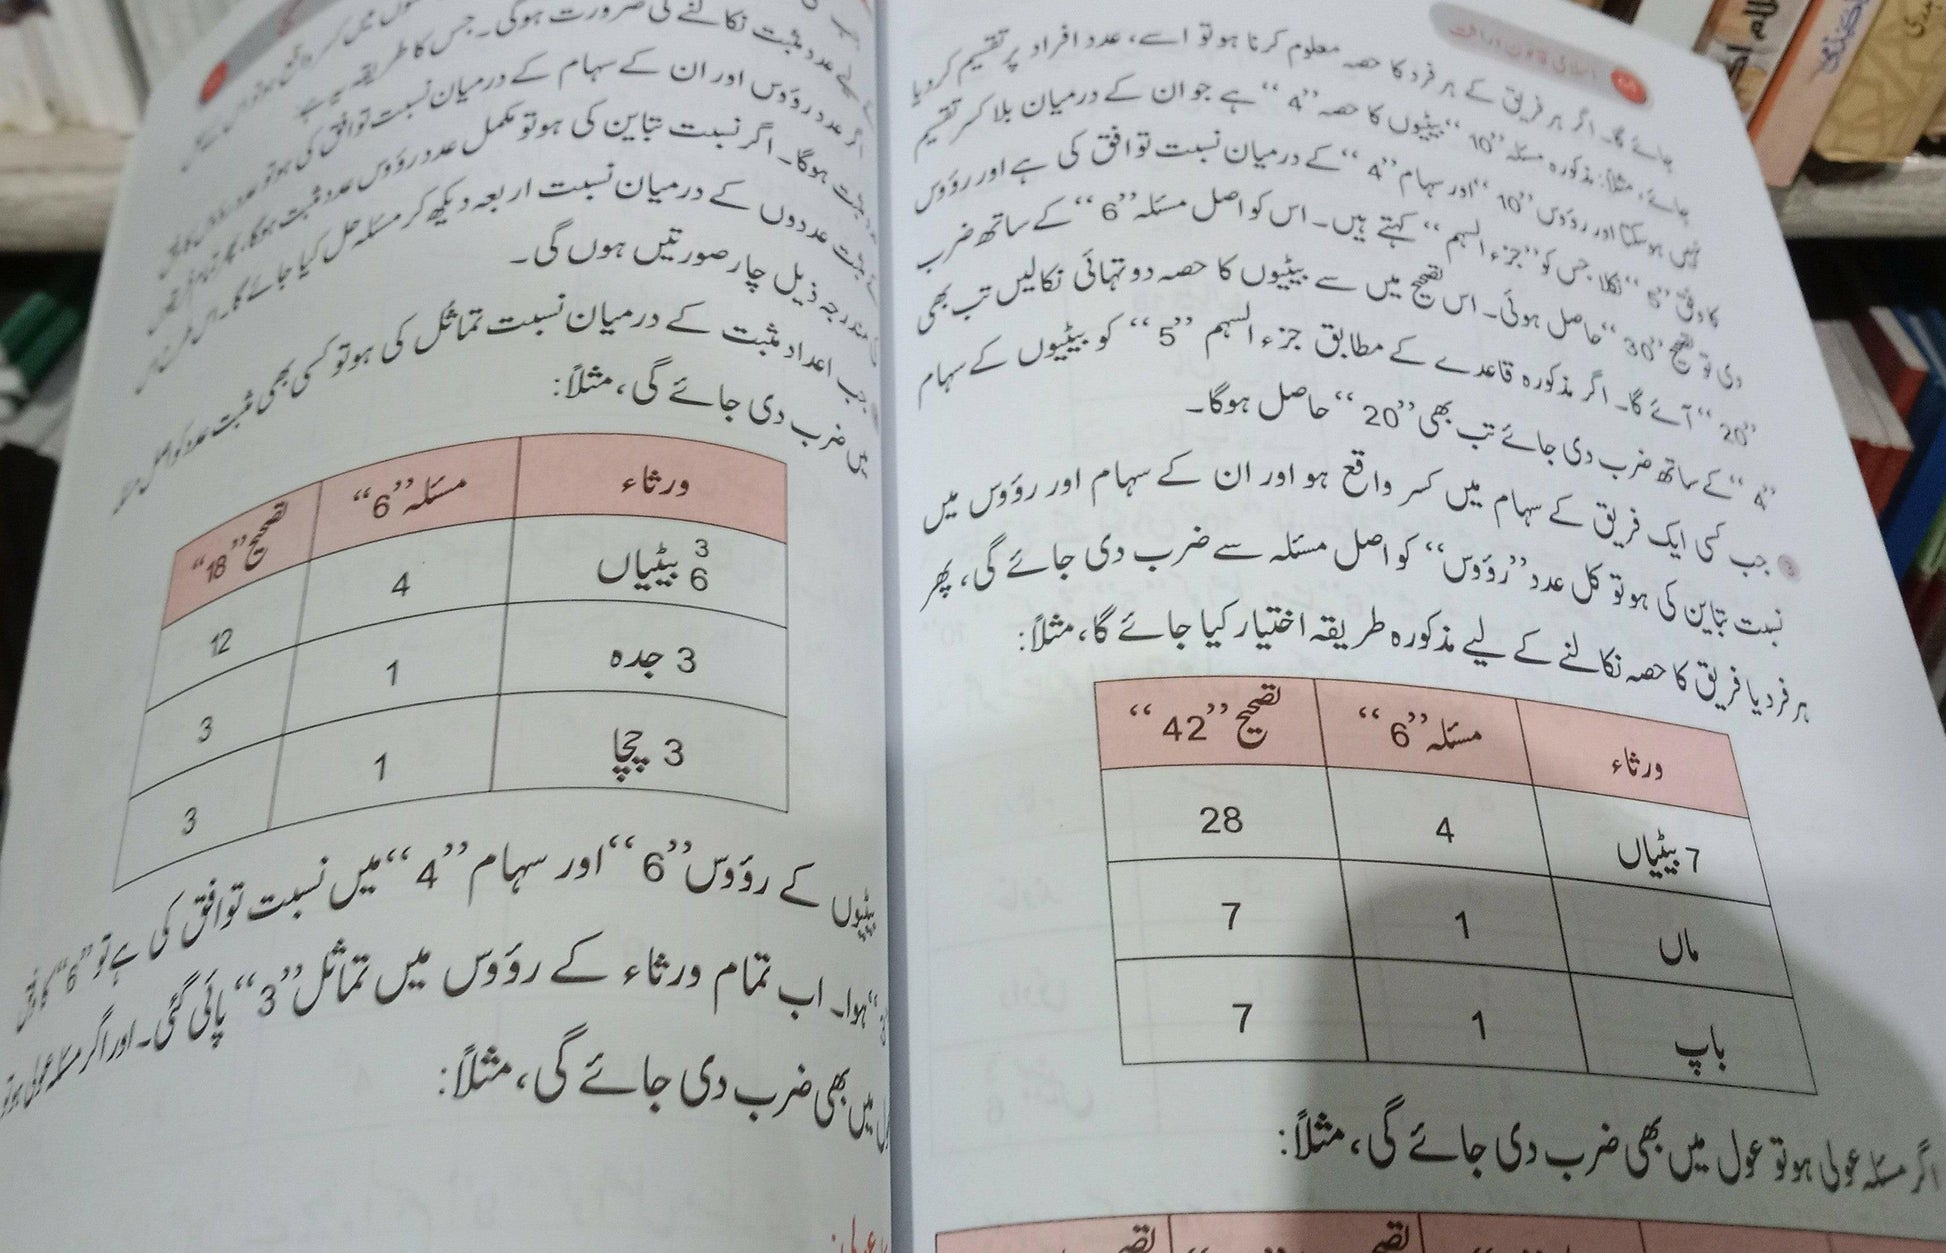 اسلامی قانون وراثت
جائے گا۔ اگر ہر فریق کے ہر فرد کا حصہ معلوم کرنا ہو تو اسے، عدد افراد پر تقسیم کر دیا
جائے، مثلاً: مذکورہ مسئلہ ”10“ بیٹیوں کا حصہ ”4“ ہے جو ان کے درمیان بلا کسر تقسیم
نہیں ہو سکتا اور رؤوس ”10“ اور سہام ”4“ کے درمیان نسبت توافق کی ہے اور رؤوس
کا وفق ”5“ نکلا، جس کو ”جزء السہم“ کہتے ہیں۔ اس کو اصل مسئلہ ”6“ کے ساتھ ضرب
دی تو تصحیح ”30“ حاصل ہوئی۔ اس تصحیح میں سے بیٹیوں کا حصہ دو تہائی نکالیں تب بھی
”20“ آئے گا۔ اگر مذکورہ قاعدے کے مطابق جزء السہم ”5“ کو بیٹیوں کے سہام
”4“ کے ساتھ ضرب دی جائے تب بھی ”20“ حاصل ہوگا۔
جب کسی ایک فریق کے سہام میں کسر واقع ہو اور ان کے سہام اور رؤوس میں
نسبت تباین کی ہو تو کل عدد ”رؤوس“ کو اصل مسئلہ سے ضرب دی جائے گی، پھر
ہر فرد یا فریق کا حصہ نکالنے کے لیے مذکورہ طریقہ اختیار کیا جائے گا، مثلاً:
ورثاء مسئلہ ”6“ تصحیح ”42“
7 بیٹیاں 4 28
ماں 1 7
باپ 1 7
اگر مسئلہ عولی ہو تو عول میں بھی ضرب دی جائے گی، مثلاً:
تصحیح
کے لیے عدد مثبت نکالنے کی ضرورت ہوگی۔ جس کا طریقہ یہ ہے:
اگر عدد رؤوس اور ان کے سہام کے درمیان نسبت توافق کی ہو تو عدد
مثبت ہوگا۔ اگر نسبت تباین کی ہو تو مکمل عدد رؤوس عدد مثبت ہوگا، پھر
مثبت عددوں کے درمیان نسبت اربعہ دیکھ کر مسئلہ حل کیا جائے گا۔ اس طرح
مندرجہ ذیل چار صورتیں ہوں گی۔
جب اعداد مثبت کے درمیان نسبت تماثل کی ہو تو کسی بھی مثبت عدد کو اصل مسئلہ
میں ضرب دی جائے گی، مثلاً:
ورثاء مسئلہ ”6“ تصحیح ”18“
3
6 بیٹیاں 4 12
3 جدہ 1 3
3 چچا 1 3
بیٹیوں کے رؤوس ”6“ اور سہام ”4“ میں نسبت توافق کی ہے تو ”6“ کا وفق
”3“ ہوا۔ اب تمام ورثاء کے رؤوس میں تماثل ”3“ پائی گئی۔ اور اگر مسئلہ عولی ہو تو
میں بھی ضرب دی جائے گی، مثلاً: